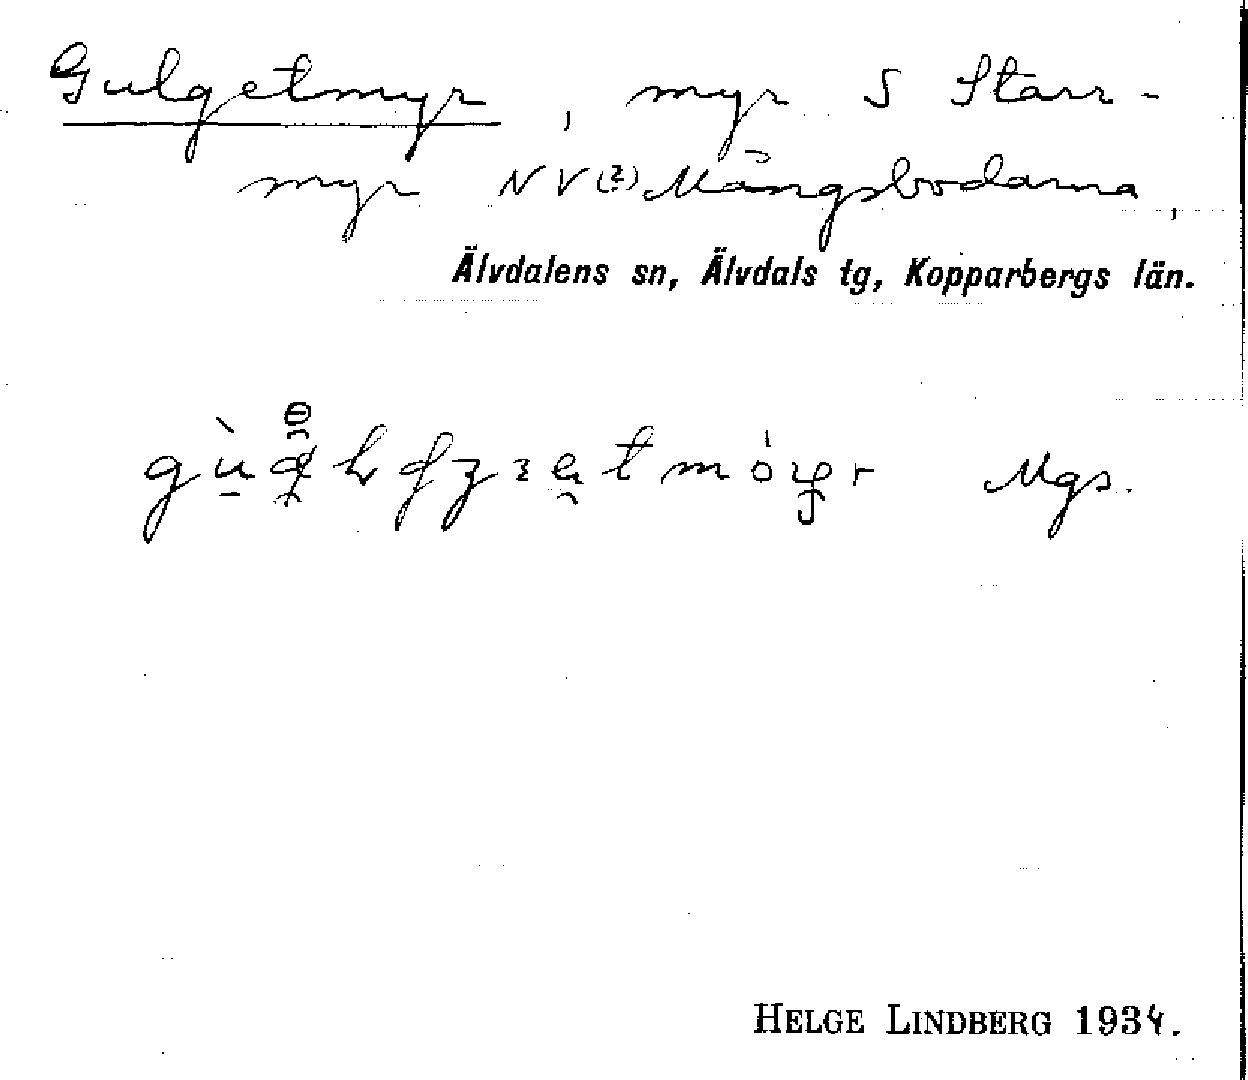 Gulgetmyr, myr S Starr-
myr NV(?) Mångsbodarna,
Älvdalens sn, Älvdals tg, Kopparbergs län.
Mgs.
HELGE LINDBERG 1934.